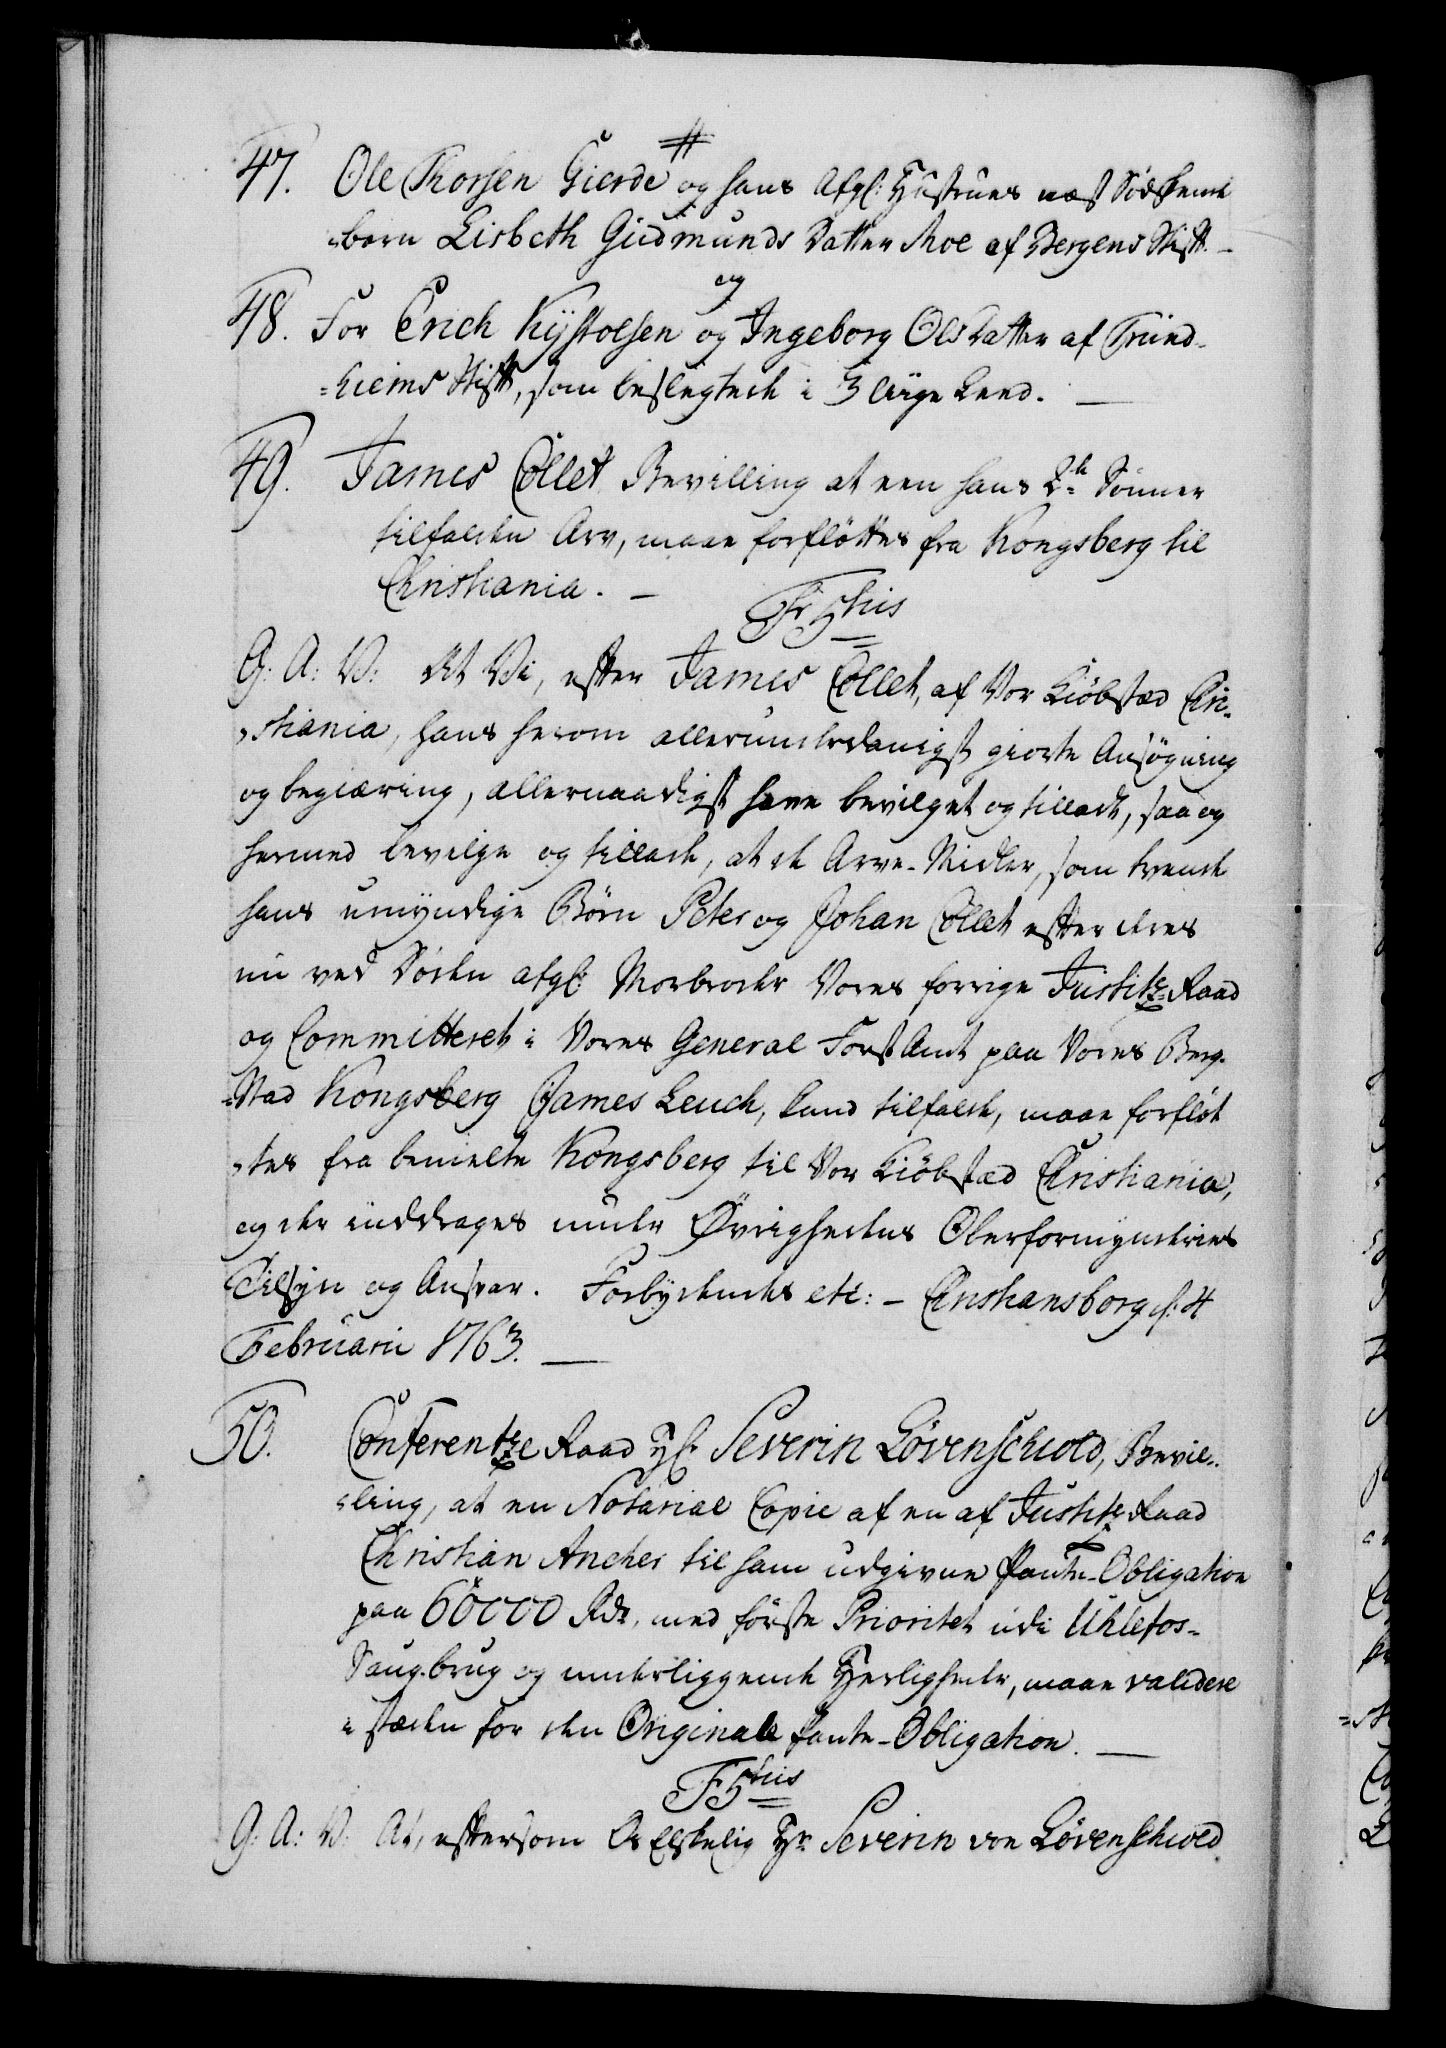 47. Ole Thorsen Gierde # og hans Afgl: Hustrues næst Sødskende
-barn Lisbeth Gudmunds Datter Moe af Bergens Stift. -
og
48. For Erich Kystolsen og Ingeborg Olsdatter af Trund-
=hiems Stift, som beslegtede i 3 liige Leed. —
49. James Collet Bevilling at een hans 2de Sönner
tilfalden Arv, maae forflöttes fra Kongsberg til
Christiania. —
Fr: 5tus
G: A: V: At Vi, efter James Collet, af Vor Kiöbstæd Chri-
-stiania, hans herom allerunderdanigst giorte Ansøgning
og begiæring, allernaadigst have bevilget og tilladt, saa og
hermed bevilge og tillade, at de Arve-Midler, som tvende
hans umyndige Börn Peter og Johan Collet efter deres
nu ved Döden afgl: Morbroder Vores forrige Justitz-Raad
og Committeret i Vores General Forst Amt paa Vores Berg-
-Stad Kongsberg James Leuch, ere tilfaldt, maae forflöt
-tes fra bemelte Kongsberg til Vor Kiöbstæd Christiania,
og der inddrages under Øvrighedens Oberformynderies
Tilsyn og Ansvar. Forbydendes etc: – Christiansborg d: 4
Februarii 1763. —
50. Conferentze Raad Hr: Severin Lövenschiold, Bevil-
-ling, at en Notarial Copie af en af Justitz Raad
Christian Ancher til ham udgivne Pante-Obligation
paa 60000 Rdr. med förste Prioritet udi Uhlefos-
Saug-brug og underliggende Herligheder, maae validere
i stæden for den Originale Pante-Obligation. —
F 5tus
G: A: V: At, eftersom Os Elskelig Hr: Severin von Lövenschiold